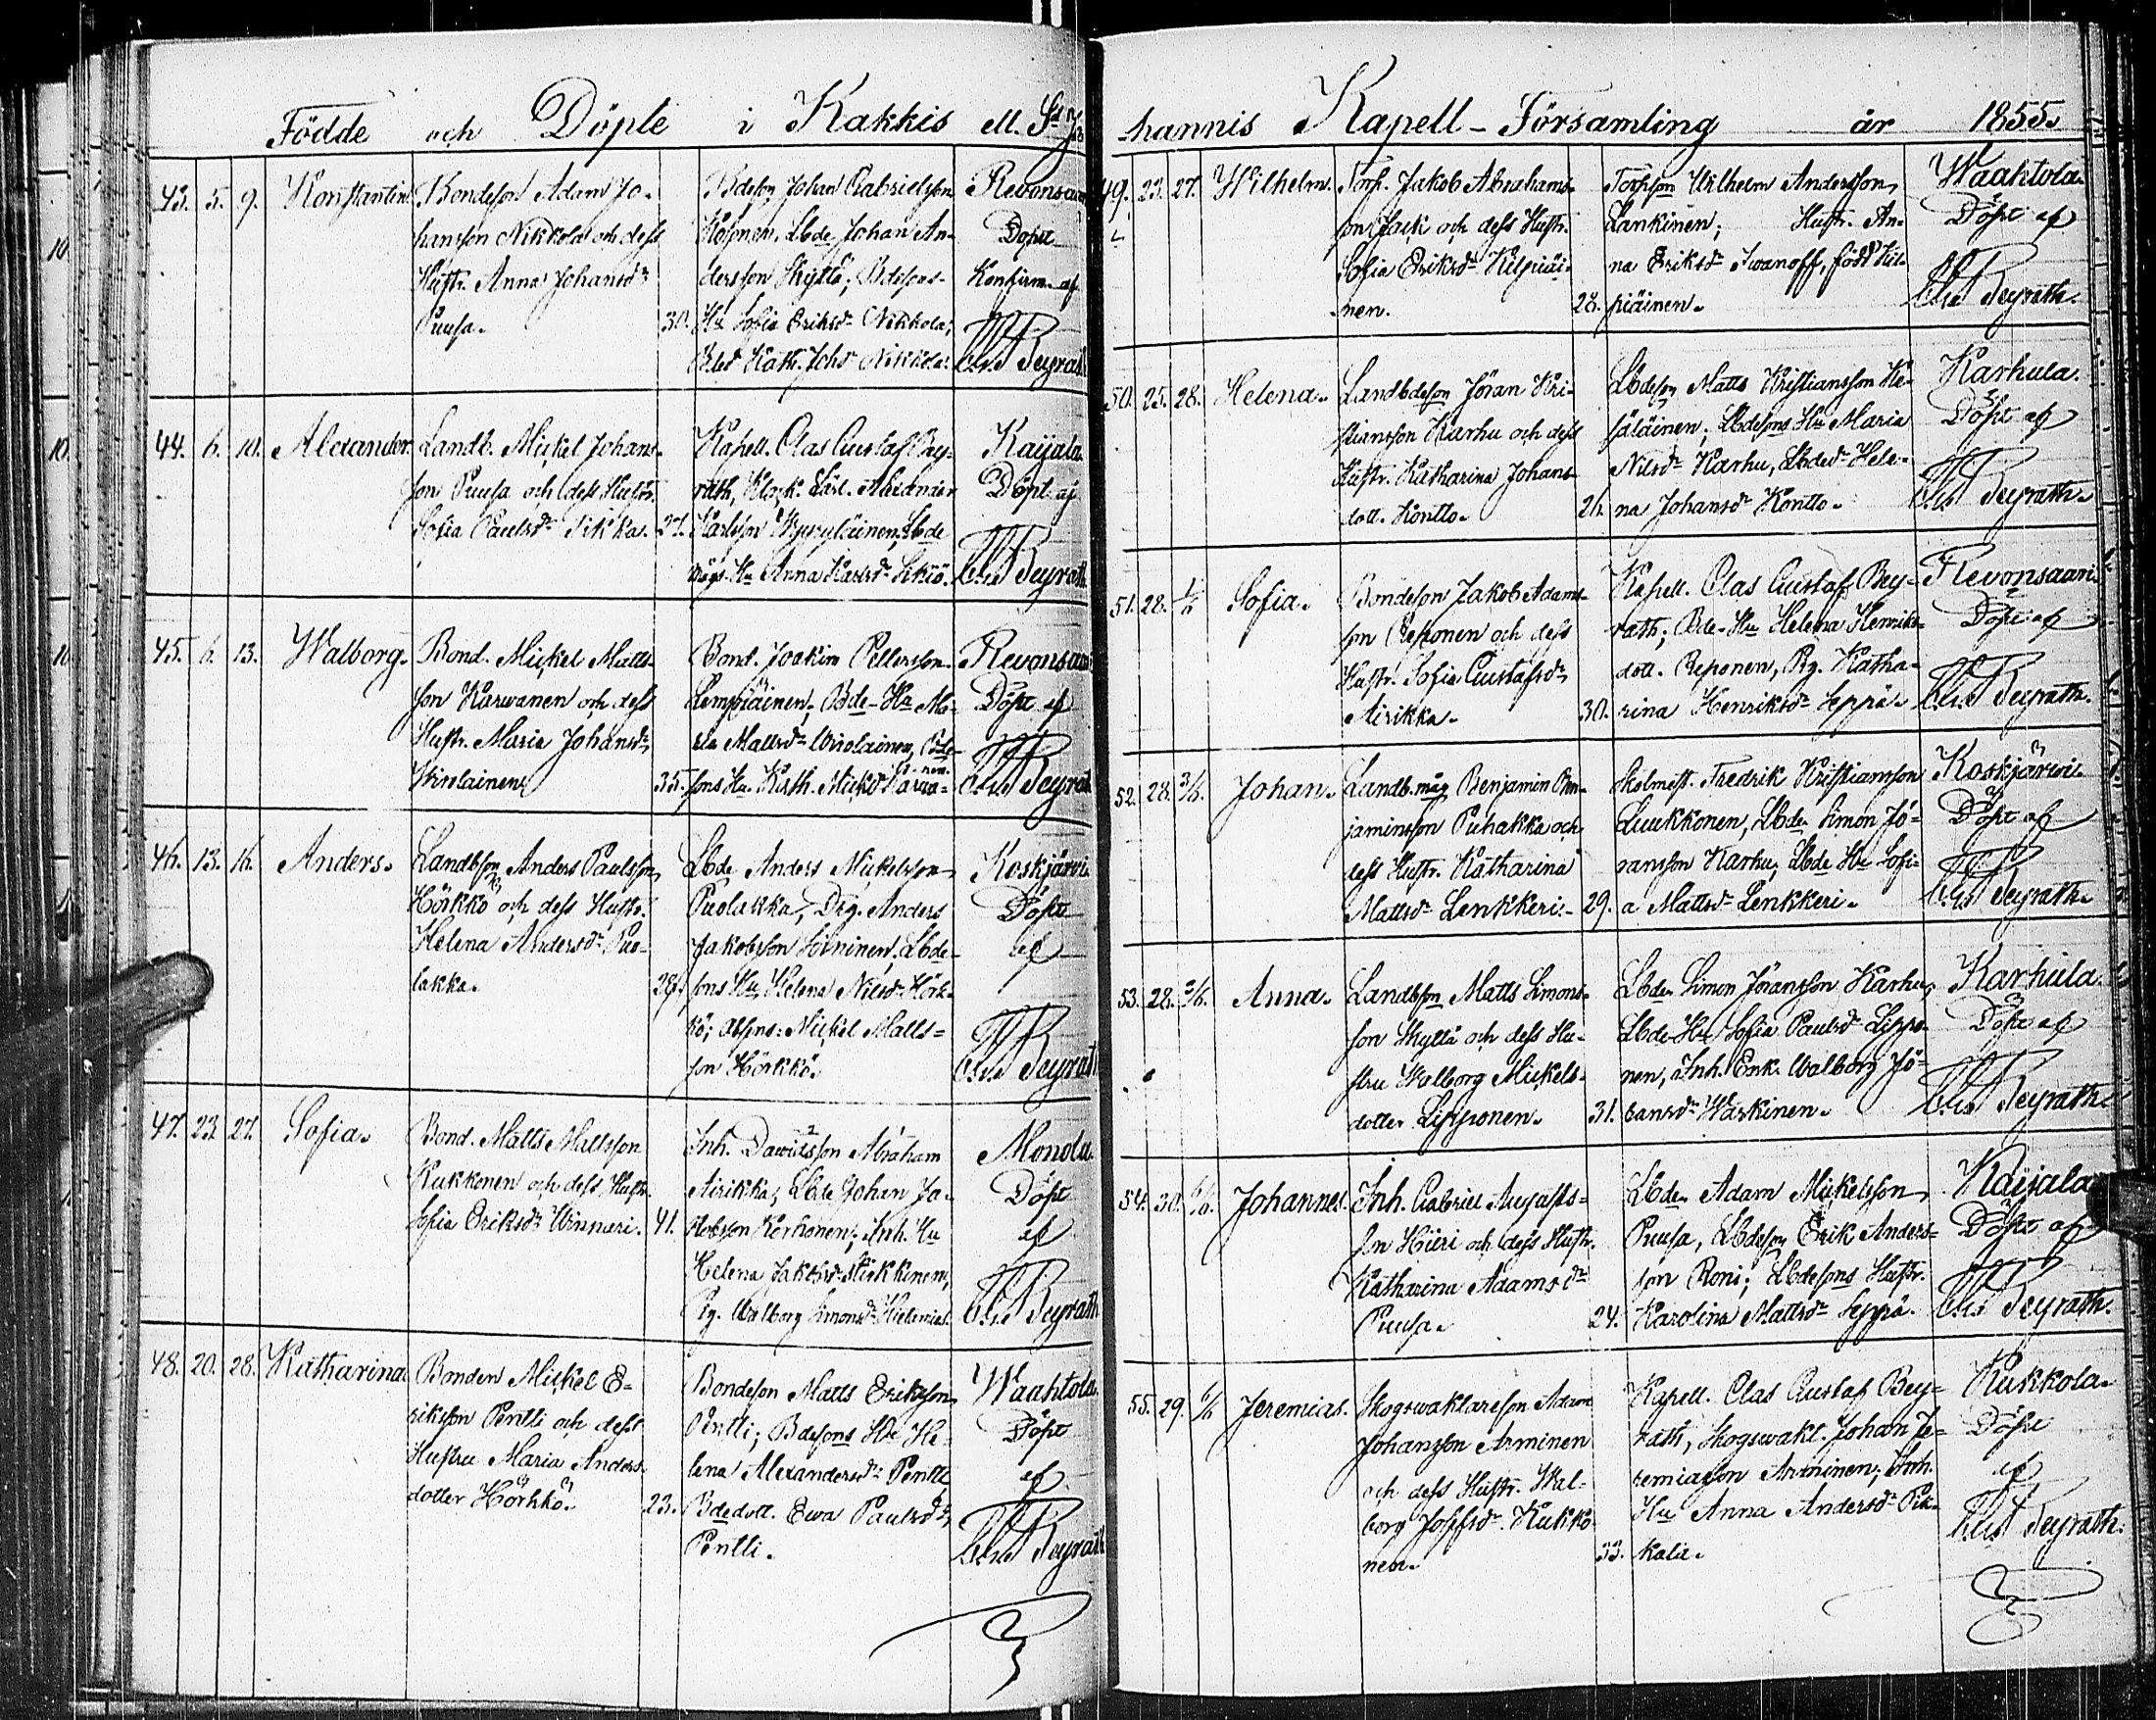 Födde och Döpte i Kakkis ell. St Jo
43. 5. 9. Konstantin.
Bondeson Adam Jo-
hansson Nikkola och dess
Hustr. Anna Johansdr
Puusa. 30.
Bdeson Johan Gabrielsson
Lbde Johan An-
dersson Skyttä; Bdesons
Hu Sofia Eriksdr Nikkola;
Kath. Johsdr Nikkola.
Revonsaari
Döpt
Konfirm. af
Beyrath
44. 6. 10. Alexander.
Landb. Mickel Johans-
son Puusa och dess Hustr.
Sofia Paulsdr Sikka. 27.
Kapell. Clas Gustaf Bey-
rath, Klock. Alexander
Karlsson Lbde
mågs Hu Anna Karlsdr
Kaijala
Döpt af
Beyrath
45. 6. 13. Walborg.
Bond. Mickel Matts-
son Karwanen och dess
Hustr. Maria Johansdr
Wirolainen 35.
Bond. Joakim Pettersson
Lempiäinen, Bde-Hu Ma-
ria Mattsdr Wirolainen, Bde-
sons Hu Kath. Mickdr Karwa-
nen.
Revonsaari
Döpt af
Beyrath
46. 13. 16. Anders.
Landbson Anders Paulsson
Hörkkö och dess Hustr.
Helena Andersdr Puo-
lakka. 28.
Lbde Anders Mickelsson
Puolakka, Drg. Anders
Jakobsson Lbde-
sons Hu Helena Nilsdr Hörk-
kö; absens: Mickel Matts-
son Hörkkö.
Koskjärvi
Döpt
af
Beyrath
47. 23. 27. Sofia.
Bond. Matts Mattsson
Kukkonen och dess Hustr.
Sofia Eriksdr Winnari. 41.
Inh. Dawidsson Abraham
Airikka, Lbde Johan Ja-
kobsson Korhonen; Inh. Hu
Helena Jakobsdr Mirkkinen,
Pg. Walborg Simonsdr
Monola.
Döpt
af
Beyrath
48. 20. 28. Katharina
Bonden Mickel E-
riksson Pentti och dess
Hustru Maria Anders-
dotter Hörkkö. 23.
Bondeson Matts Eriksson
Pentti; Bdesons Hu He-
lena Alexandersdr Pentti
Bdedott. Ewa Paulsdr
Pentti.
Waahtola.
Döpt
af
Beyrath
hannis Kapell-Församling år 1855.
49. 23. 27. Wilhelm.
Torp. Jakob Abrahams-
son Jack och dess Hustr.
Sofia Eriksdr Kilpiäi-
nen. 28.
Torpson Wilhelm Andersson
Lankinen; Hustr. An-
na Eriksdr Iwanoff, född Kil-
piäinen.
Waahtola.
Döpt af
Beyrath.
50. 25. 28. Helena.
Landbdeson Jöran Kri-
stiansson Karhu och dess
Hustr. Katharina Johans-
dott. Kontto. 26.
Lbdeson Matts Kristiansson Ke-
säläinen; Lbdesons Hu Maria
Nilsdr Karhu, Lbdedr Hele-
na Johansdr Kontto.
Karhula.
Döpt af
Beyrath.
51. 28. 1/6 Sofia.
Bondeson Jakob Adams-
son Reponen och dess
Hustr. Sofia Gustafsdr
Airikka. 30.
Kapell. Clas Gustaf Bey-
rath; Bde-Hu Helena Henriks-
dott. Reponen, Pg. Katha-
rina Henriksdr Seppä.
Revonsaari
Döpt af
Beyrath.
52. 28. 3/6. Johan.
Landb.måg Benjamin Ben-
jaminsson Puhakka och
dess Hustr. Katharina
Mattsdr Lenkkeri. 29.
Skolmest. Fredrik Kristiansson
Luukkonen, Lbde Simon Jö-
ransson Karhu, Lbde Hu Sofi-
a Mattsdr Lenkkeri.
Koskjärwi.
Döpt af
Beyrath.
53. 28. 3/6. Anna.
Landbson Matts Simons-
son Skyttä och dess Hu-
stru Walborg Mickels-
dotter Lipponen. 31.
Lbde Simon Jöransson Karhu,
Lbde-Hu Sofia Paulsdr Lippo-
nen, Inh. Enk. Walborg Jö-
ransdr Waskinen.
Karhula.
Döpt af
Beyrath.
54. 30. 6/6. Johannes.
Inh. Gabriel Augusts-
son Hiiri och dess Hustr.
Katharina Adamsdr
Puusa. 24.
Lbde Adam Mickelsson
Puusa, Lbdeson Erik Anders-
son Roni; Lbdesons Hustr.
Karolina Mattsdr Seppä.
Kaijala
Döpt af
Beyrath.
55. 29. 6/6 Jeremias.
Skogswaktareson Adam
Johansson Arminen
och dess Hustr. Wal-
borg Josefsdr. Kukko-
nen. 33.
Kapell. Clas Gustaf Bey-
rath, Skogswakt. Johan Je-
remiasson Arminen; Inh.
Hu Anna Andersdr Pik-
kala.
Kukkola.
Döpt
af
Beyrath.